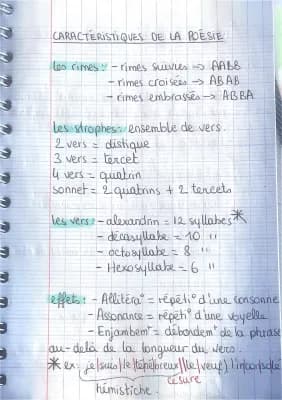 CARACTÉRISTIQUES DE LA POÉSIE
Les rimes : - rimes suivies → AABB
- rimes croisées → ABAB
- rimes embrassés → ABBA
Les strophes : ensemble de vers.
2 vers = distique
3 vers = tercet
4 vers = quatrin
sonnet = 2 quatrins + 2 tercets
les vers : - alexandrin = 12 syllabes *
- décasyllabe = 10 "
- octosyllabe = 8 "
- Hexosyllabe = 6 "
effets : - Allitéra° = répéti° d'une consonne
- Assonance = répéti° d'une voyelle
- Enjambem^t = débordem^t de la phrase
au-delà de la longueur du vers.
* ex: je/suis/le/ténébreux/le/veuf/l'inconsolé
hémistiche. césure